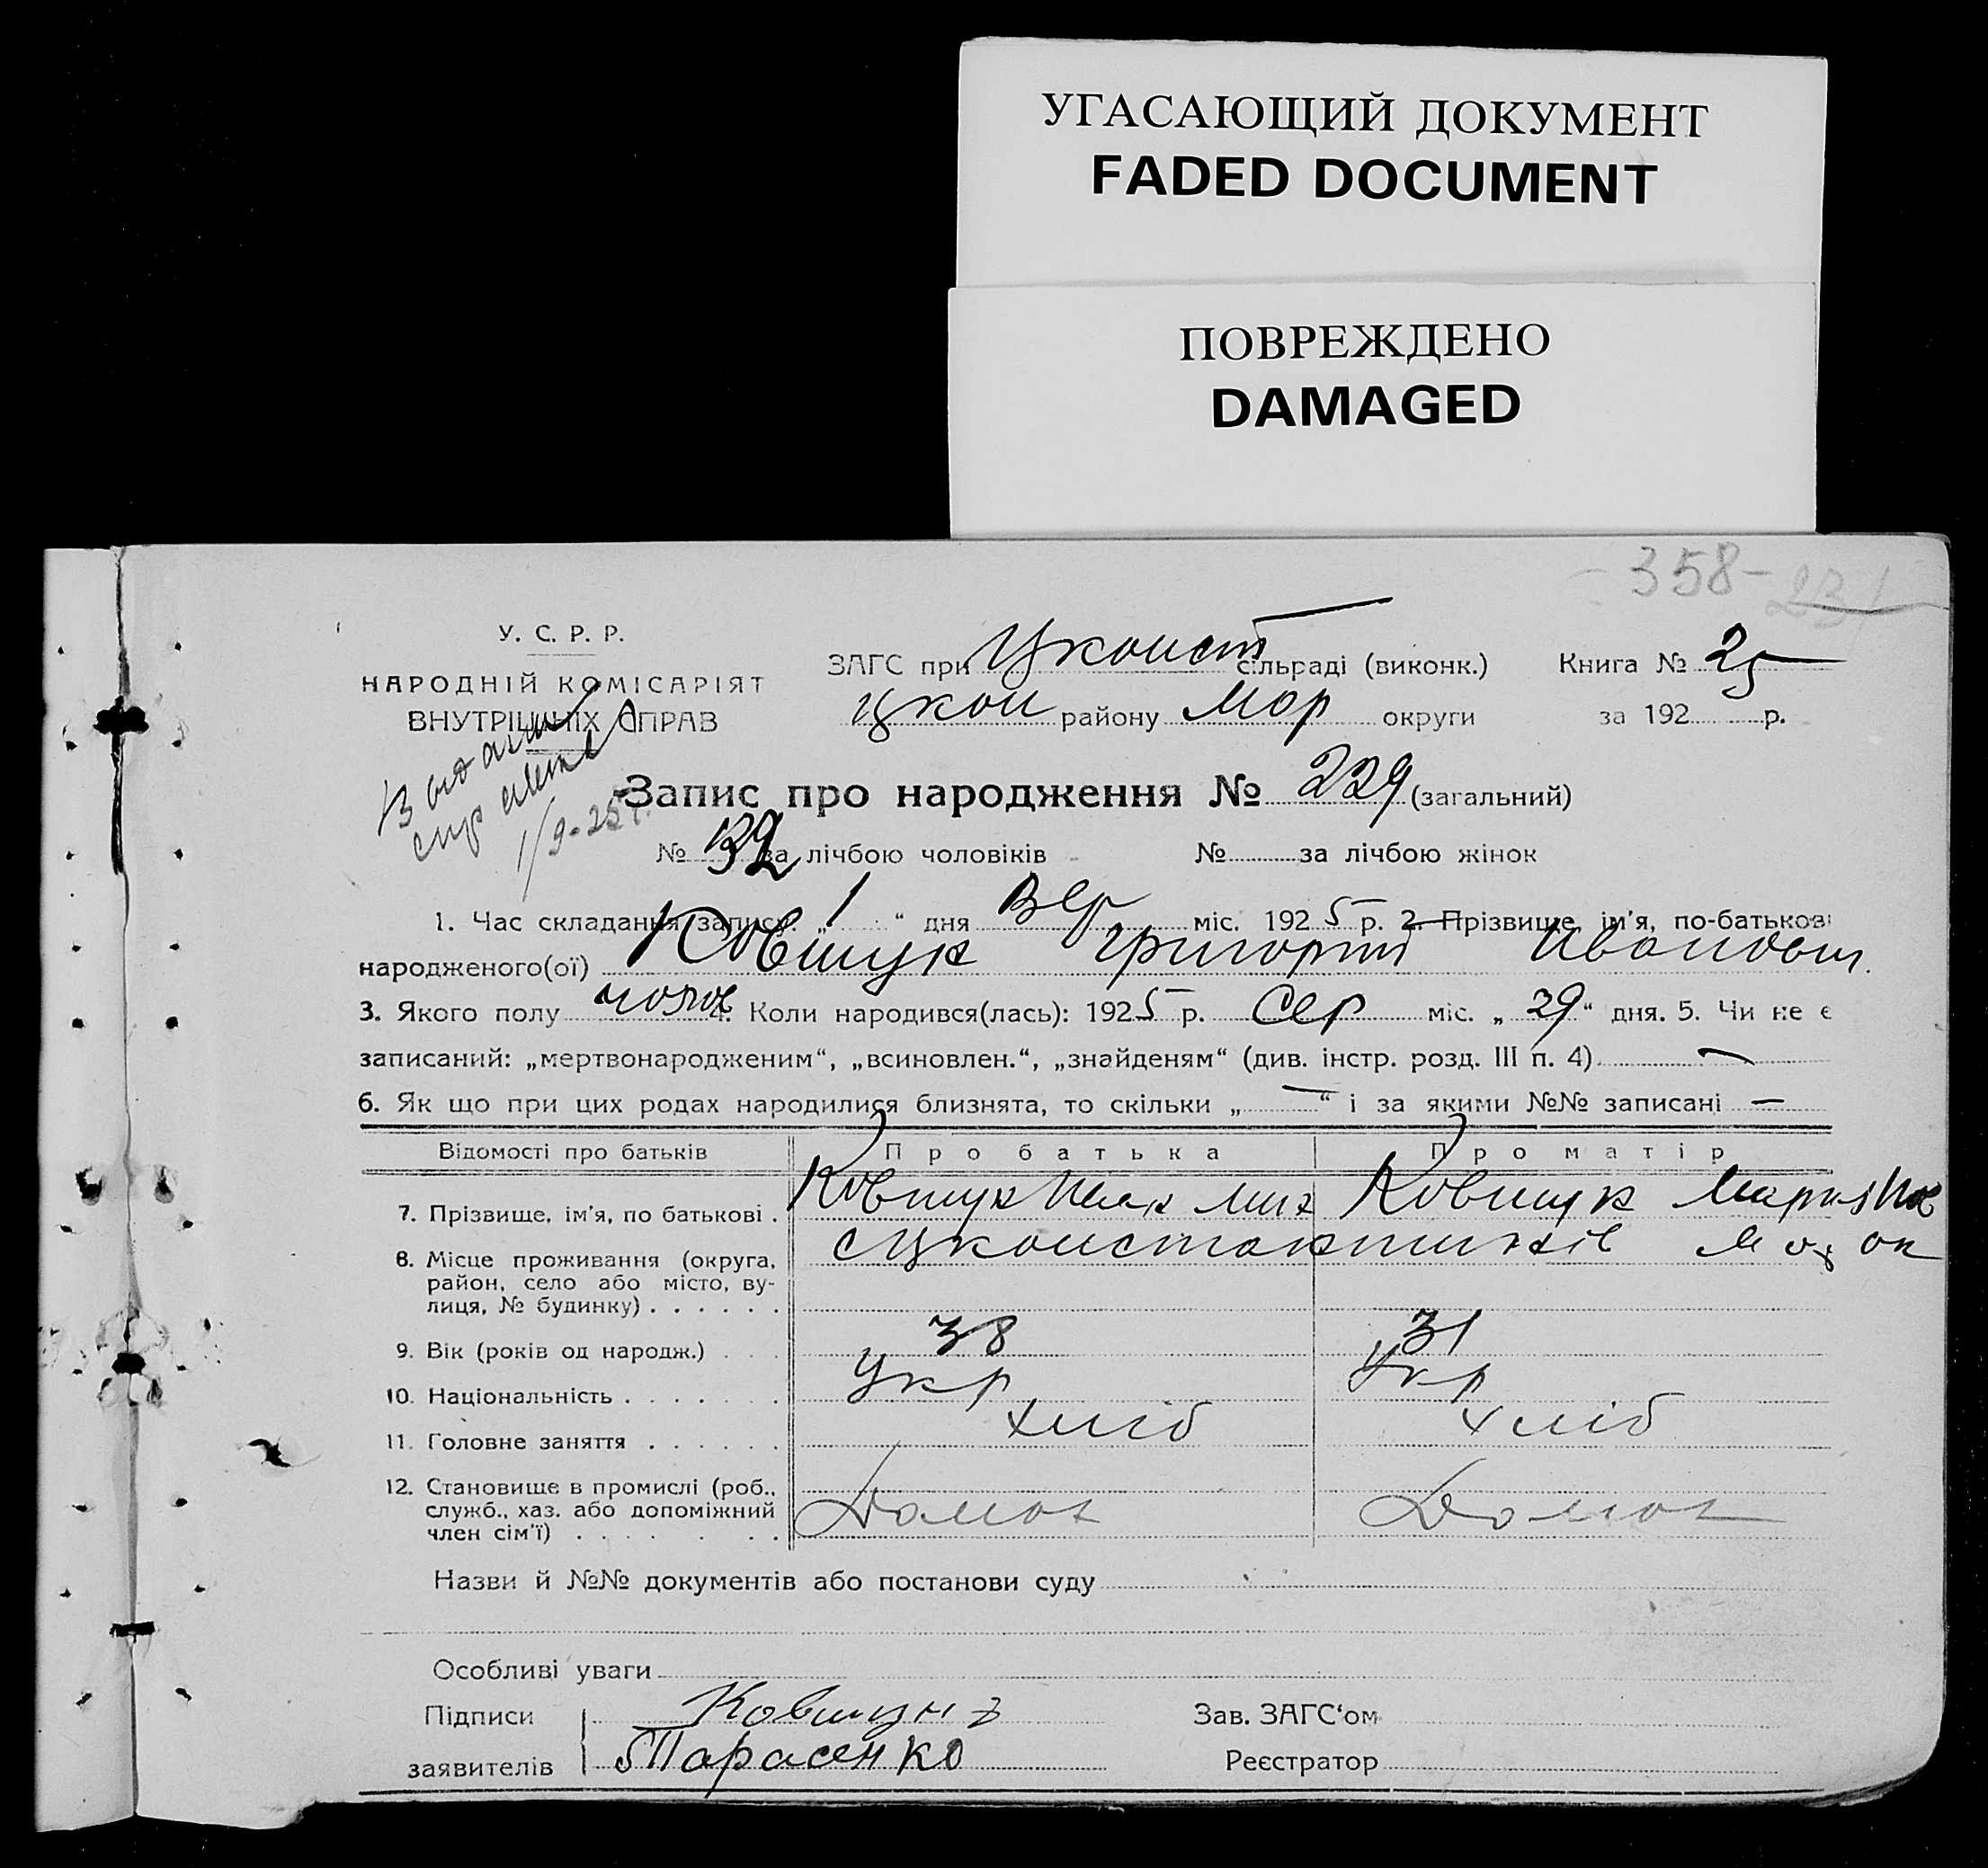 УГАСАЮЩИЙ ДОКУМЕНТ
FADED DOCUMENT
ПОВРЕЖДЕНО
DAMAGED
358-231
У. С. Р. Р.
НАРОДНІЙ КОМІСАРІЯТ
ВНУТРІШНІХ СПРАВ
ЗАГС при Цконст сільраді (виконк.) Книга № 25
цкон району Мор округи за 192 р.
1/9-25 г.
Запис про народження № 229 (загальний)
№ 132 за лічбою чоловіків № за лічбою жінок
1. Час складання запису: „ 1 “ дня Вер міс. 1925 р. 2. Прізвище, ім'я, по-батькові
народженого(ої) Ковшук Григорій Иванович
3. Якого полу чолов 4. Коли народився(лась): 1925 р. Сер міс. „ 29 “ дня. 5. Чи не є
записаний: „мертвонародженим“, „всиновлен.“, „знайденям“ (див. інстр. розд. III п. 4) —
6. Як що при цих родах народилися близнята, то скільки „ — “ і за якими №№ записані —
Відомості про батьків Про батька Про матір
7. Прізвище, ім'я, по батькові . Ковшук Иван Мих Ковшук Мария
8. Місце проживання (округа, сцконстантинів
район, село або місто, ву-
лиця, № будинку) . . . . . .
9. Вік (років од народж.) . . . 38 31
10. Національність . . . . . . . Укр Укр
11. Головне заняття . . . . . . хліб хліб
12. Становище в промислі (роб.,
служб., хаз. або допоміжний Домог Домог
член сім'ї) . . . . . . .
Назви й №№ документів або постанови суду
Особливі уваги
Підписи Ковшук Зав. ЗАГС‘ом
заявителів Тарасенко Реєстратор